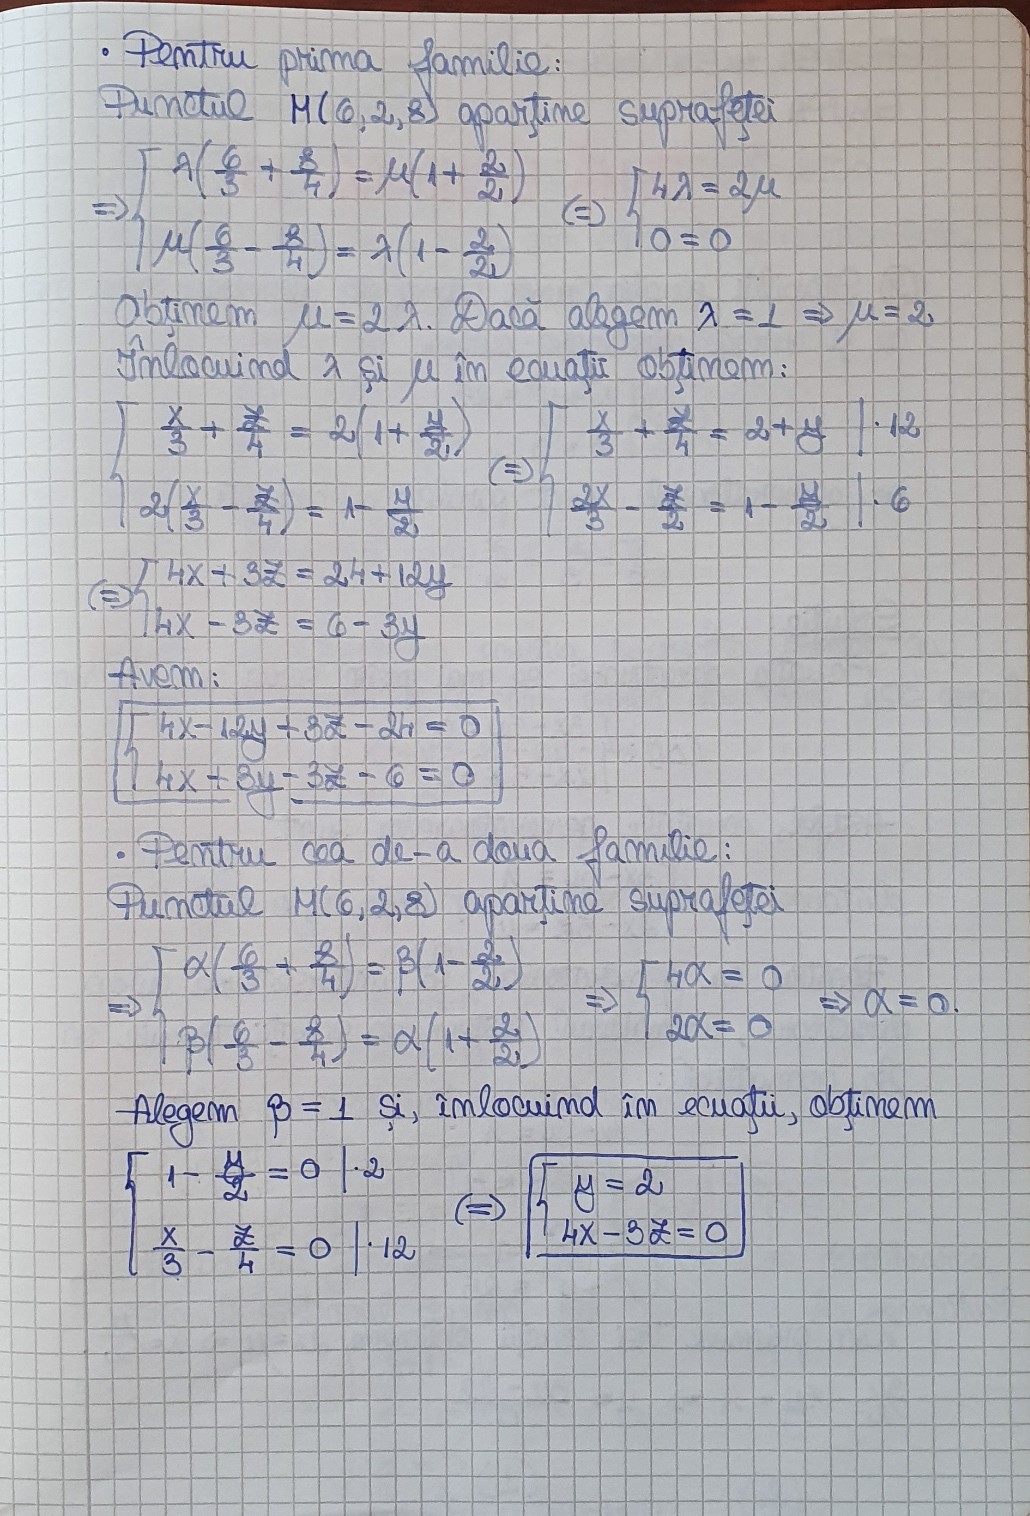 • Pentru prima familie:
Punctul M(6,2,8) aparține suprafeței
⇒ { λ(6/3 + 8/4) = μ(1 + 2/2) ⇔ { 4λ = 2μ
μ(6/3 - 8/4) = λ(1 - 2/2) 0 = 0
Obținem μ = 2λ. Dacă alegem λ = 1 ⇒ μ = 2.
Înlocuind λ și μ în ecuații obținem:
{ x/3 + z/4 = 2(1 + y/2) ⇔ { x/3 + z/4 = 2 + y |·12
2(x/3 - z/4) = 1 - y/2 2x/3 - z/2 = 1 - y/2 |·6
⇔ { 4x + 3z = 24 + 12y
4x - 3z = 6 - 3y
Avem:
{ 4x - 12y + 3z - 24 = 0
4x + 3y - 3z - 6 = 0
• Pentru cea de-a doua familie:
Punctul M(6,2,8) aparține suprafeței
⇒ { α(6/3 + 8/4) = β(1 - 2/2) ⇒ { 4α = 0 ⇒ α = 0.
β(6/3 - 8/4) = α(1 + 2/2) 2α = 0
Alegem β = 1 și, înlocuind în ecuații, obținem
{ 1 - y/2 = 0 |·2 ⇔ { y = 2
x/3 - z/4 = 0 |·12 4x - 3z = 0